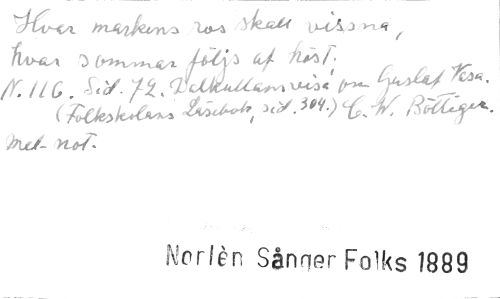 Hvar markens ros skall vissna,
hvar sommar följs af höst.
N. 116. Sid. 72. Dalkullans visa om Gustaf Vasa.
(Folkskolans Läsebok, sid. 304.) C. W. Böttiger.
Mel- not.
Norlèn Sånger Folks 1889